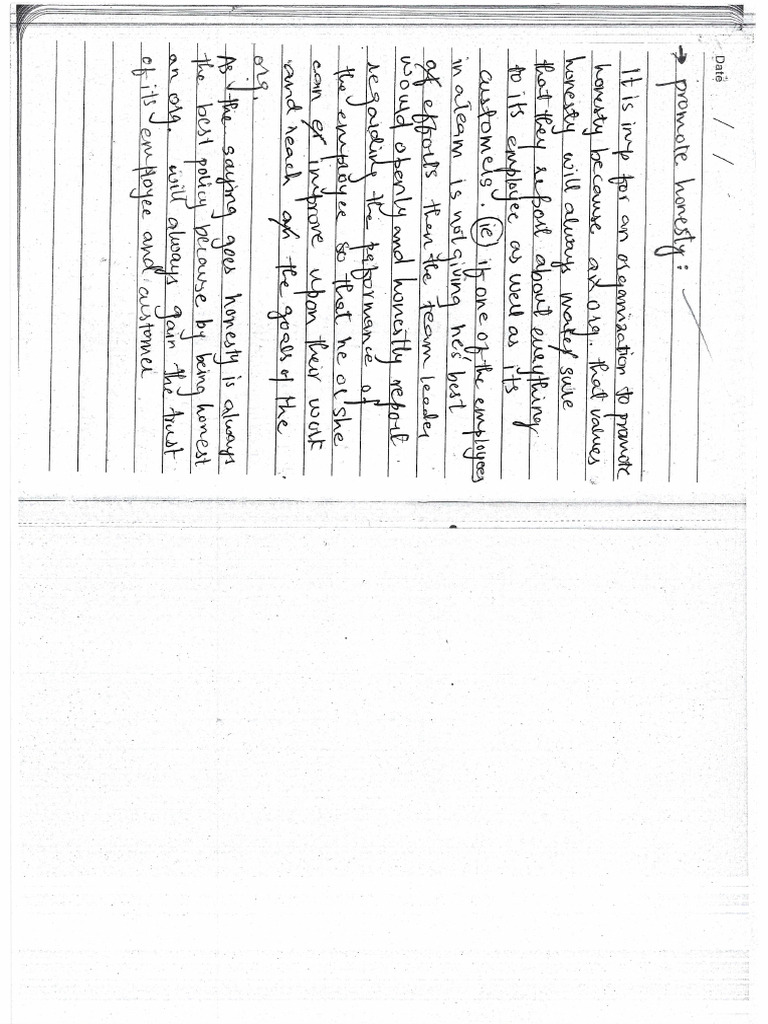 Date / /
→ promote honesty:
It is imp for an organization to promote
honesty because an org. that values
honesty will always makes sure
that they report about everything
to its employee as well as its
customers. (ie) if one of the employees
in a team is not giving he's best
of efforts then the team leader
would openly and honestly report
regarding the performance of
the employee so that he or she
can improve upon their work
and reach the goals of the
org.
As the saying goes honesty is always
the best policy because by being honest
an org. will always gain the trust
of its employee and customer